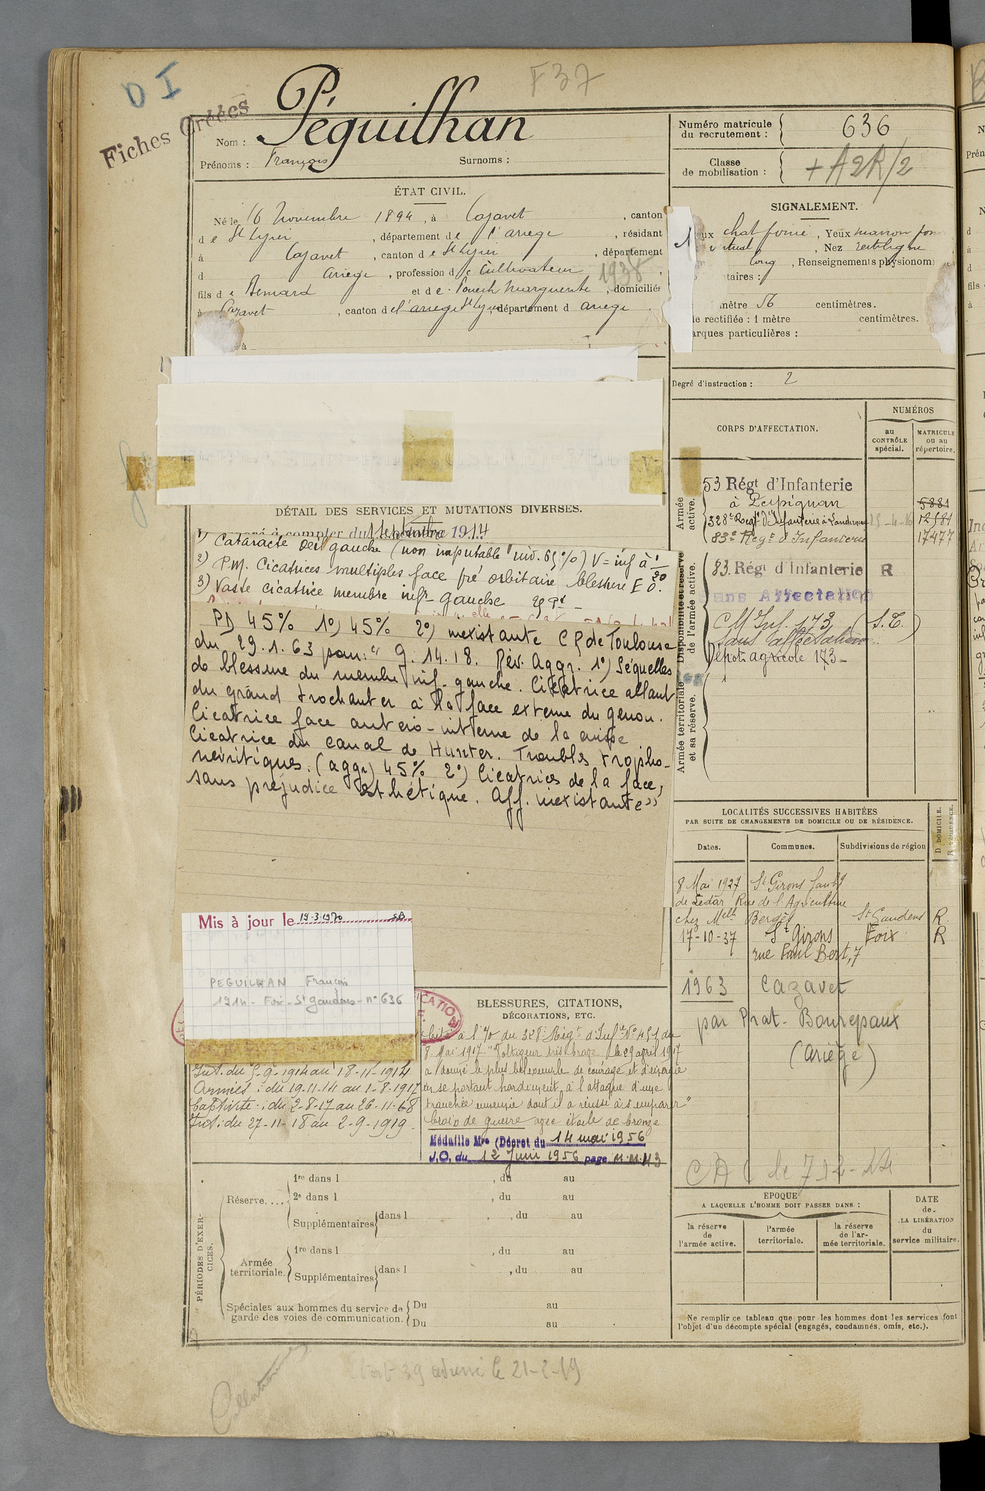 D I
F 37
Fiches Créées
Nom : Péguilhan
Prénoms : François Surnoms :
Numéro matricule du recrutement : 636
Classe de mobilisation : + A2R/2
ÉTAT CIVIL.
Né le 16 Novembre 1894, à Cazavet, canton
de St Lizier, département de l'Ariège, résidant
à Cazavet, canton de St Lizier, département
d Ariège, profession de Cultivateur 1938
fils de Bernard et de Pouech Marguerite, domiciliés
à Cazavet, canton de St Lizier, département d Ariège
SIGNALEMENT.
chat foncé, Yeux marron fon
, Nez rectiligne
long, Renseignements physionom
taires :
mètre 56 centimètres.
le rectifiée : 1 mètre centimètres.
arques particulières :
Degré d'instruction : 2
CORPS D'AFFECTATION.
NUMÉROS
au CONTRÔLE spécial.
MATRICULE ou au répertoire.
Armée active.
53 Régt d'Infanterie
à Perpignan 5881
328e Régt d'Infanterie 12581
83e Régt d'Infanterie 17477
Disponibilité et réserve de l'armée active.
83. Régt d'Infanterie R
Sans Affectation
CM Inf. 173 (S.T.)
Sans affectation
Dépôt agricole 173
Armée territoriale et sa réserve.
DÉTAIL DES SERVICES ET MUTATIONS DIVERSES.
à compter du 1914
1) Cataracte œil gauche (non imputable) V = inf à 1/20
2) P.M. Cicatrices multiples face pré orbitaire, blessure E O.
3) Vaste cicatrice membre inf. gauche
PD 45% 1°) 45% 2°) inexistante CR de Toulouse
du 29.1.63 pour : " G. 14.18. Rév. Aggr. 1°) Séquelles
de blessure du membre inf. gauche. Cicatrice allant
du grand trochanter à la face externe du genou.
Cicatrice face antero-interne de la cuisse
Cicatrice du canal de Hunter. Troubles tropho-
nevritiques. (aggr) 45% 2°) Cicatrices de la face,
sans préjudice esthétique. Aff. inexistante "
LOCALITÉS SUCCESSIVES HABITÉES
PAR SUITE DE CHANGEMENTS DE DOMICILE OU DE RÉSIDENCE.
Dates. Communes. Subdivisions de région
D. DOMICILE.
8 Mai 1927 St Girons faubg
de Lédar Rue de l'Agriculture
chez Melle Bergès St Gaudens R
17-10-37 St Girons Foix R
rue Paul Bert, 7
1963 Cazavet
par Prat-Bonrepaux
(Ariège)
Mis à jour le 19-3-1970
PEGUILHAN François
1914 - Foix - St Gaudens - n° 636
Int. du 5-9-1914 au 18-11-1914
Armées : du 19-11-14 au 1-8-1917
Captivité : du 2-8-17 au 26-11-68
Int : du 27-11-18 au 2-9-1919
BLESSURES, CITATIONS,
DÉCORATIONS, ETC.
Cité à l'O/ du 328e Régt d'Inft No 451 du
8 Mai 1917 "Voltigeur très brave, le 29 avril 1917
a donné le plus bel exemple de courage et d'énergie
en se portant hardiment à l'attaque d'une
tranchée ennemie dont il a réussi à s'emparer"
Croix de guerre avec étoile de bronze
Médaille Mre (Décret du 14 mai 1956
J.O. du 12 Juin 1956 page
PÉRIODES D'EXERCICES.
Réserve.... 1re dans l , du au
2e dans l , du au
Supplémentaires dans l , du au
Armée territoriale. 1re dans l , du au
Supplémentaires dans l , du au
Spéciales aux hommes du service de garde des voies de communication. Du au
Du au
ÉPOQUE
A LAQUELLE L'HOMME DOIT PASSER DANS :
la réserve de l'armée active.
l'armée territoriale.
la réserve de l'armée territoriale.
DATE de LA LIBÉRATION du service militaire.
Ne remplir ce tableau que pour les hommes dont les services font
l'objet d'un décompte spécial (engagés, condamnés, omis, etc.).
39 adressé le 21-2-19